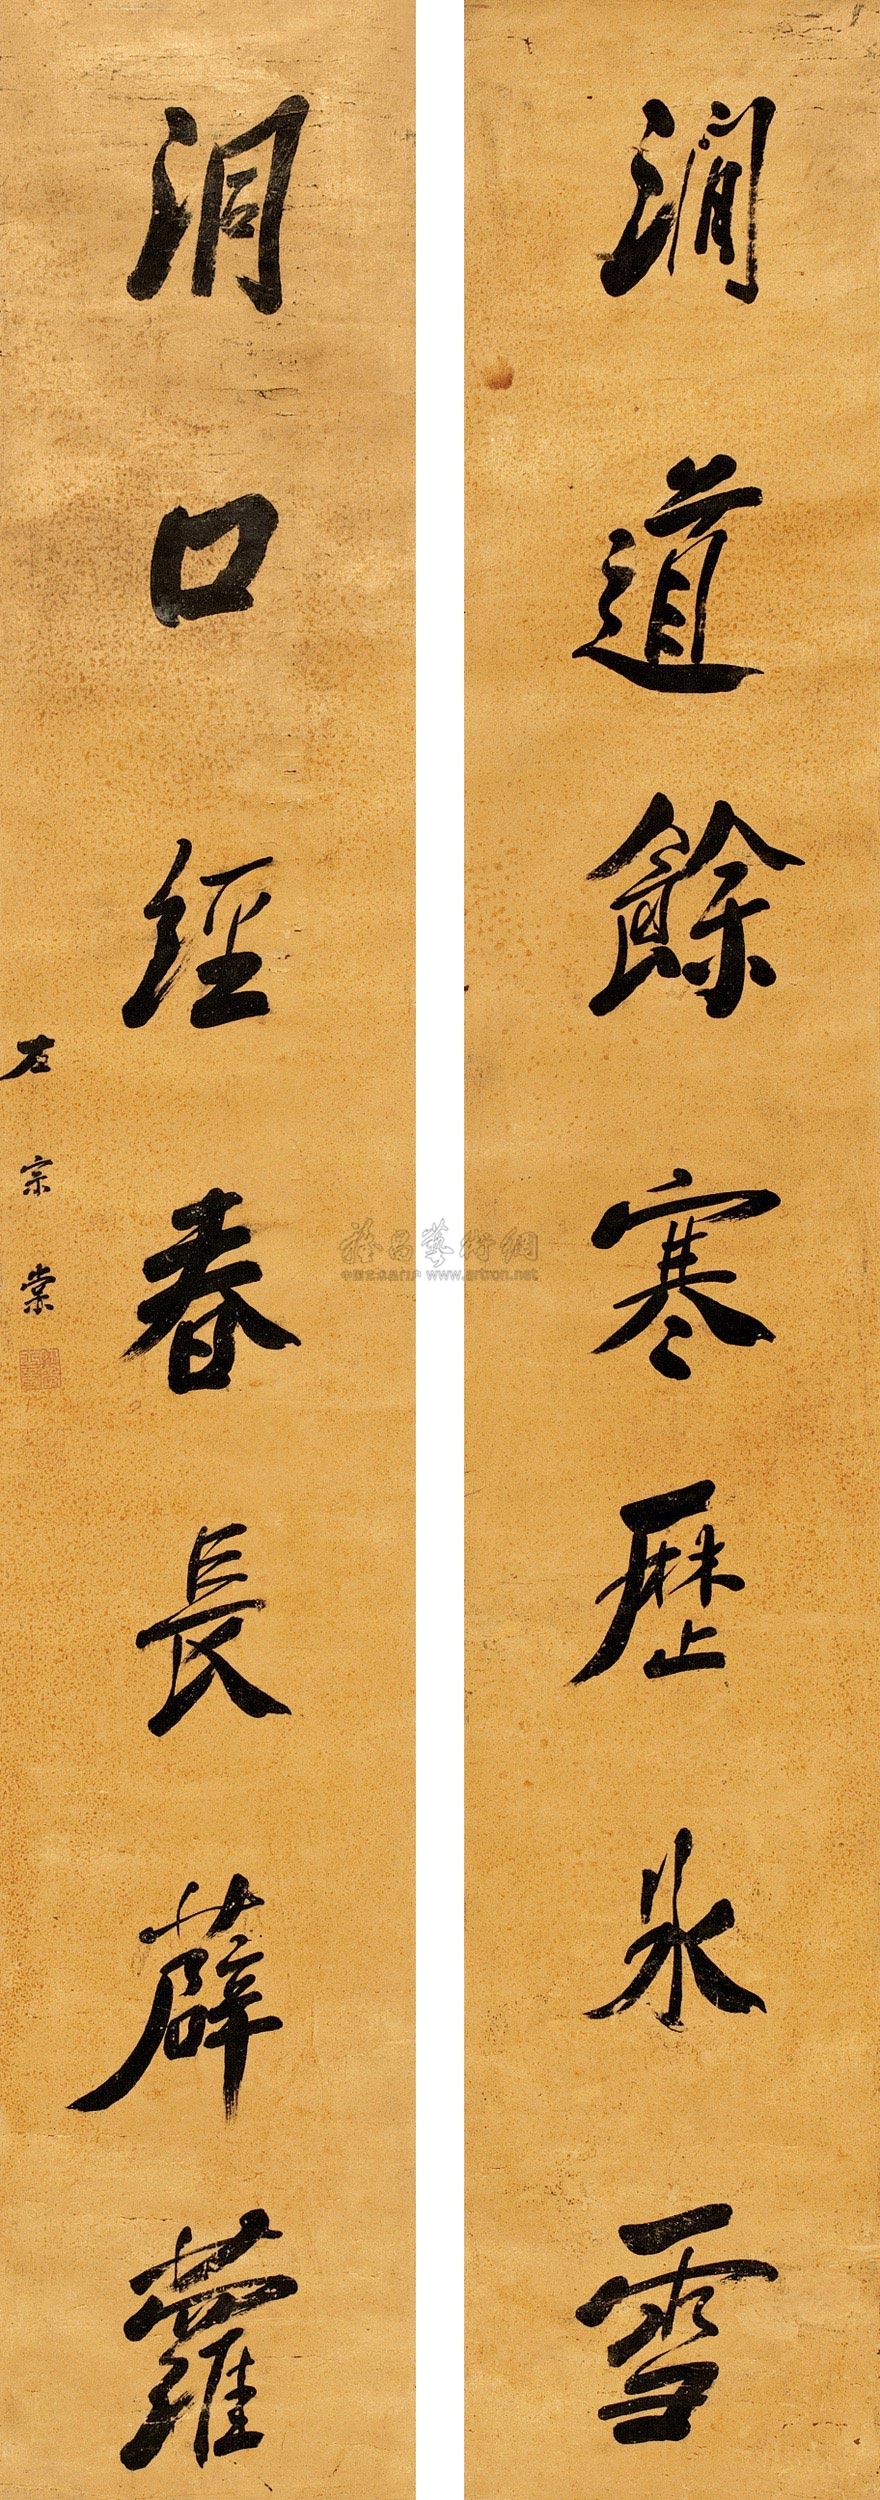 澗道餘寒歷冰雪
洞口經春長薜蘿
左宗棠
雅昌藝術網
www.artron.net